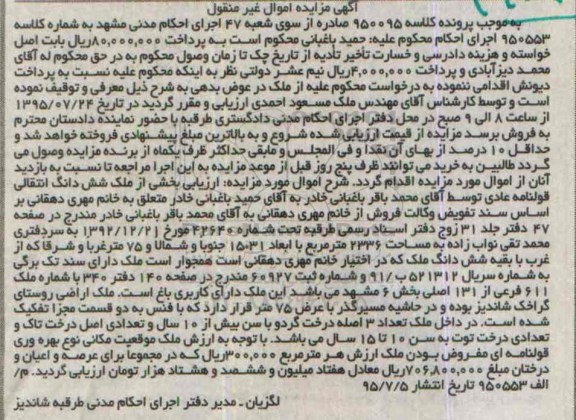 آگهی مزایده اموال غیر منقول
به موجب پرونده کلاسه ۹۵۰۰۹۵ صادره از سوی شعبه ۴۷ اجرای احکام مدنی مشهد به شماره کلاسه
۹۵۰۵۵۳ اجرای احکام محکوم علیه: حمید باغبانی محکوم است به پرداخت ۸۰,۰۰۰,۰۰۰ریال بابت اصل
خواسته و هزینه دادرسی و خسارت تأخیر تأدیه از تاریخ چک تا زمان وصول محکوم به در حق محکوم له آقای
محمد دیزآبادی و پرداخت ۴,۰۰۰,۰۰۰ریال نیم عشر دولتی نظر به اینکه محکوم علیه نسبت به پرداخت
دیونش اقدامی ننموده به درخواست محکوم علیه از ملک در عوض بدهی به شرح ذیل معرفی و توقیف نموده
است و توسط کارشناس آقای مهندس ملک مسعود احمدی ارزیابی و مقرر گردید در تاریخ ۱۳۹۵/۰۷/۲۴
از ساعت ۸ الی ۹ صبح در محل دفتر اجرای احکام مدنی دادگستری طرقبه با حضور نماینده دادستان محترم
به فروش برسد مزایده از قیمت ارزیابی شده شروع و به بالاترین مبلغ پیشنهادی فروخته خواهد شد و
حداقل ۱۰ درصد از بهای آن نقدا و فی المجلس و مابقی حداکثر ظرف یکماه از برنده مزایده وصول می
گردد طالبین به خرید می توانند ظرف پنج روز قبل از موعد مزایده به این اجرا مراجعه تا نسبت به بازدید
آنان از اموال مورد مزایده اقدام گردد. شرح اموال مورد مزایده: ارزیابی بخشی از ملک شش دانگ انتقالی
قولنامه عادی توسط آقای محمد باقر باغبانی خادر به آقای حمید باغبانی خادر متعلق به خانم مهری دهقانی بر
اساس سند تفویض وکالت فروش از خانم مهری دهقانی به آقای محمد باقر باغبانی خادر مندرج در صفحه
۴۷ دفتر جلد ۳۱ زوج دفتر اسناد رسمی طرقبه تحت شماره ۴۲۶۴۰ مورخ ۱۳۹۲/۱۲/۲۱ به سردفتری
محمد تقی نواب زاده به مساحت ۲۳۳۶ مترمربع با ابعاد ۱۵۰۳۱ جنوبا و شمالا و ۷۵ مترغربا و شرقا که از
غرب با بقیه شش دانگ ملک که در اختیار خانم مهری دهقانی است همجوار است ملک دارای سند تک برگی
به شماره سریال ۵۲۱۳۱۲ ب/۹۱ و شماره ثبت ۶۰۹۲۷ مندرج در صفحه ۱۴۰ دفتر ۳۴۰ با شماره ملک
۶۱۱ فرعی از ۱۳۱ اصلی بخش ۶ مشهد می باشد این ملک دارای کاربری باغ است. ملک اراضی روستای
گراخک شاندیز بوده و در حاشیه مسیرگذر با عرض ۷۵ متر قرار دارد که با فنس به دو قسمت مجزا تفکیک
شده است. در داخل ملک تعداد ۳ اصله درخت گردو با سن بیش از ۱۰ سال و تعدادی اصل درخت تاک و
تعدادی درخت توت به سن ۱۰ تا ۱۵ سال می باشد. با توجه به ارزش ملک موقعیت مکانی نوع بهره وری
قولنامه ای مفروض بودن ملک ارزش هر مترمربع ۳۰۰,۰۰۰ریال که در مجموعا برای عرصه و اعیان و
درختان مبلغ ۷۰۶,۸۰۰,۰۰۰ریال معادل هفتاد میلیون و ششصد و هشتاد هزار تومان ارزیابی گردید. م/
الف ۹۵۰۵۵۳ تاریخ انتشار ۹۵/۷/۵
لگزیان ـ مدیر دفتر اجرای احکام مدنی طرقبه شاندیز